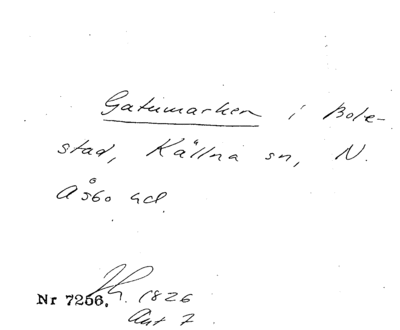 Gatumarken i Bole-
stad, Källna sn, N.
Åsbo hd
Nr 7256. 1826
Akt 7